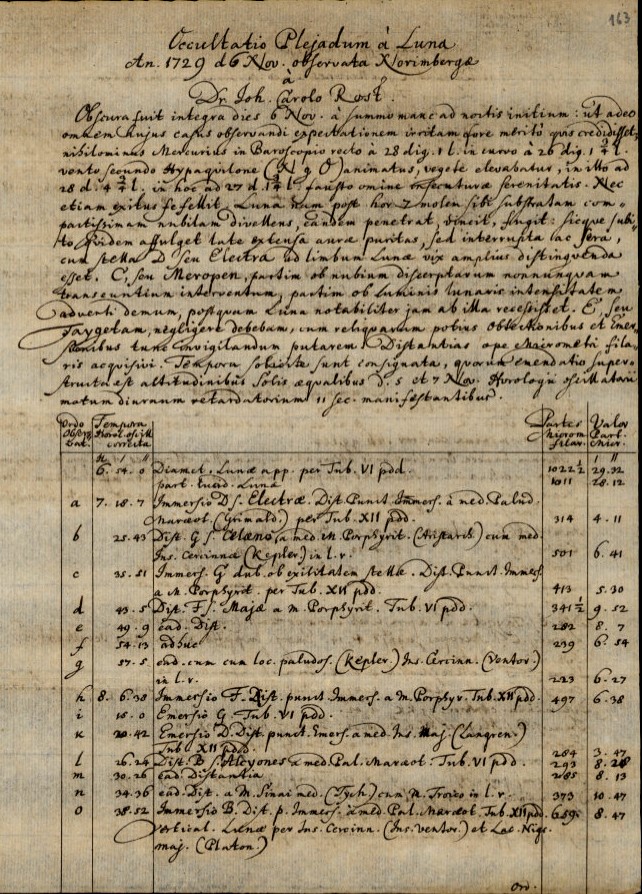 163
Occultatio Plejadum à Luna
An. 1729 d 6 Nov. observata Norimbergæ
à
Dr. Joh. Carolo Rost.
Obscura fuit integra dies 6 Nov. à summo mane ad noctis initium: ut adeo
omnem hujus casus observandi expectationem irritam fore meritò quis credidisset,
nihilominus Mercurius in Baroscopio recto à 28 dig. 1 l. in curvo à 26 dig. 1 3/4 l.
vento secundo Hypaquilone (N g O) animatus, vegete elevabatur, in illo ad
28 d. 4 3/4 l. in hoc ad 27 d. 1 3/4 l. fausto omine serenitatis. Nec
etiam exitus fefellit. Luna nam post hor 7 molem sibi substratam com-
pactissimam nubilam divellens, eandem penetrat, vincit, fugit: sicque subi-
to quidem affulget late extensa auræ puritas, sed interrupta ac sera,
cum stella D seu Electra ad limbum Lunæ vix amplius distinguenda
esset. C, seu Meropen, partim ob nubium discerptarum nonnunquam
transeuntium interventum, partim ob Luminis lunaris intensitatem
adverti demum, postquam Luna notabiliter jam ab illa recessisset. E, seu
Taygetam, negligere debebam, cum reliquarum potius Obtectionibus et Emer-
sionibus tunc invigilandum putarem. Distantias ope Micrometri fila-
ris acquisivi. Tempora solicite sunt consignata, quorum emendatio super-
structa est altitudinibus Solis æqualibus d. 5 et 7 Nov. Horologii oscillatorii
motum diurnum retardatorium 11 sec. manifestantibus.
Ordo Observat. Tempora Horol. oscill. correcta Partes Microm. filar. Valor Part. Micr.
H ' " ' "
6. 54. 0 Diamet. Lunæ app. per Tub. VI pdd. 1022 1/2 29.32
part. lucid. Luna 1011 28.12
a 7. 18. 7 Immersio D s. Electræ. Dist. Punct. Immers. à med. Palud.
Maræot (Grimald.) per Tub. XII pdd. 314 4. 11
b 25. 43 Dist. G s. Celæno, a med. M. Porphyrit. (Aristarch.) cum med.
Ins. Cercinnæ (Kepler.) in l. r. 501 6. 41
c 35. 51 Immers. G dub. ob exilitatem stellæ. Dist. Punct. Immers.
a M. Porphyrit. per Tub. XII pdd. 413 5. 30
d 43. 5 Dist. F s. Majæ a m. Porphyrit. Tub. VI pdd. 341 1/2 9. 52
e 49. 9 ead. Dist. 282 8. 7
f 54. 13 adhuc 239 6. 54
g 57. 5 ead. cum cum loc. paludos. (Kepler.) Ins. Cercinn. (Ventor.)
in l. r. 223 6. 27
h 8. 6. 38 Immersio F. Dist. punct. Immers. a M. Porphyr. Tub. XII pdd. 497 6. 38
i 15. 0 Emersio G Tub. VI pdd.
k 20. 42 Emersio D. Dist. punct. Emers. a med. Ins. Maj. (Langren.)
Tub. XII pdd. 284 3. 47
l 26. 24 Dist. B s. Alcyones a med. Pal. Maræot. Tub. VI pdd. 293 8. 28
m 30. 26 ead. Distantia 285 8. 13
n 34. 36 ead. Dist. a M. Sinai med. (Tych.) cum M. Troico in l. r. 373 10. 47
o 38. 52 Immersio B. Dist. p. Immers. a med. Pal. Maræot. Tub. XII pdd. 659. 8. 47
vertical. Lunæ per Ins. Cercinn. (Ins. ventor.) et Lac. Nigr.
maj. (Platon.)
Ord.